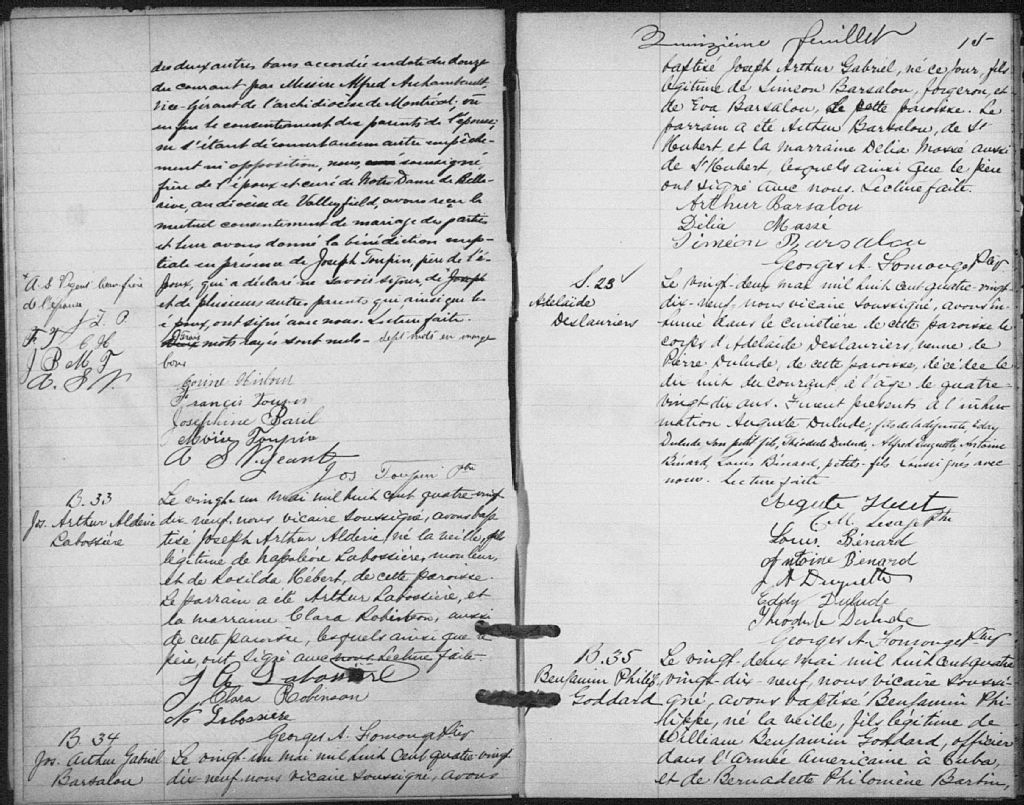 des deux autres bans accordée en date du douze
du courant par Messire Alfred Archambeault,
vice-gérant de l'archidiocèse de Montréal, vu
enfin le consentement des parents de l'épouse;
ne s'étant découvert aucun autre empêche-
ment ni opposition, nous, soussigné
frère de l'époux et curé de Notre Dame de Belle-
rive, au diocèse de Valleyfield, avons reçu le
mutuel consentement de mariage des parties
et leur avons donné la bénédiction nup-
tiale en présence de Joseph Toupin, père de l'é-
poux, qui a déclaré ne savoir signer, de Joseph
et de plusieurs autres parents qui ainsi que les
époux, ont signé avec nous. Lecture faite.
mots rayés sont nuls. sept mots en marge
bons
A. S. Vigeant beau-frère
de l'épouse
J. T. P.
F T C H
J B M T
A. S. V
Corine
Francis Toupin
Josephine Baril
Moïse Toupin
A S Vigeant
Jos Toupin Ptre
B. 33
Jos. Arthur Alderic
Labossière
Le vingt-un mai mil huit cent quatre-vingt
dix-neuf, nous vicaire soussigné, avons bap-
tisé Joseph Arthur Alderic, né la veille, fils
légitime de Napoléon Labossière, mouleur,
et de Rosilda Hébert, de cette paroisse.
Le parrain a été Arthur Labossière, et
la marraine Clara Robinson, aussi
de cette paroisse, lesquels ainsi que le
père, ont signé avec nous. Lecture faite.
J A Labossière
Clara Robinson
N. Labossière
Georges A. Ptre
B. 34
Jos. Arthur Gabriel
Barsalou
Le vingt-un mai mil huit cent quatre-vingt
dix-neuf, nous vicaire soussigné, avons
Quinzième feuillet 15
baptisé Joseph Arthur Gabriel, né ce jour, fils
légitime de Siméon Barsalou, forgeron, et
de Eva Barsalou, de cette paroisse. Le
parrain a été Arthur Barsalou, de St
Hubert et la marraine Délia Massé aussi
de St Hubert, lesquels ainsi que le père
ont signé avec nous. Lecture faite.
Arthur Barsalou
Délia Massé
Siméon Barsalou
Georges A. Ptre
S. 23
Adelaïde
Deslauriers
Le vingt-deux mai mil huit cent quatre-vingt
dix-neuf, nous vicaire soussigné, avons in-
humé dans le cimetière de cette paroisse le
corps d'Adelaïde Deslauriers, veuve de
Pierre Dulude, de cette paroisse, décédée le
dix huit du courant, à l'âge de quatre-
vingt dix ans. Furent présents à l'inhu-
mation Auguste Dulude, fils de la défunte, Eddy
Dulude son petit fils, Théodule Dulude, Alfred Duquette, Antoine
Bénard, Louis Bénard, petits-fils soussignés avec
nous. Lecture faite
Auguste
Louis Bénard
Antoine Bénard
J A Duquette
Eddy Dulude
Théodule Dulude
Georges A. Ptre
B. 35
Benjamin Philippe
Goddard
Le vingt-deux mai mil huit cent quatre
vingt-dix-neuf, nous vicaire soussi-
gné, avons baptisé Benjamin Phi-
lippe, né la veille, fils légitime de
William Benjamin Goddard, officier
dans l'Armée Américaine à Cuba,
et de Bernadette Philomène Barbin,